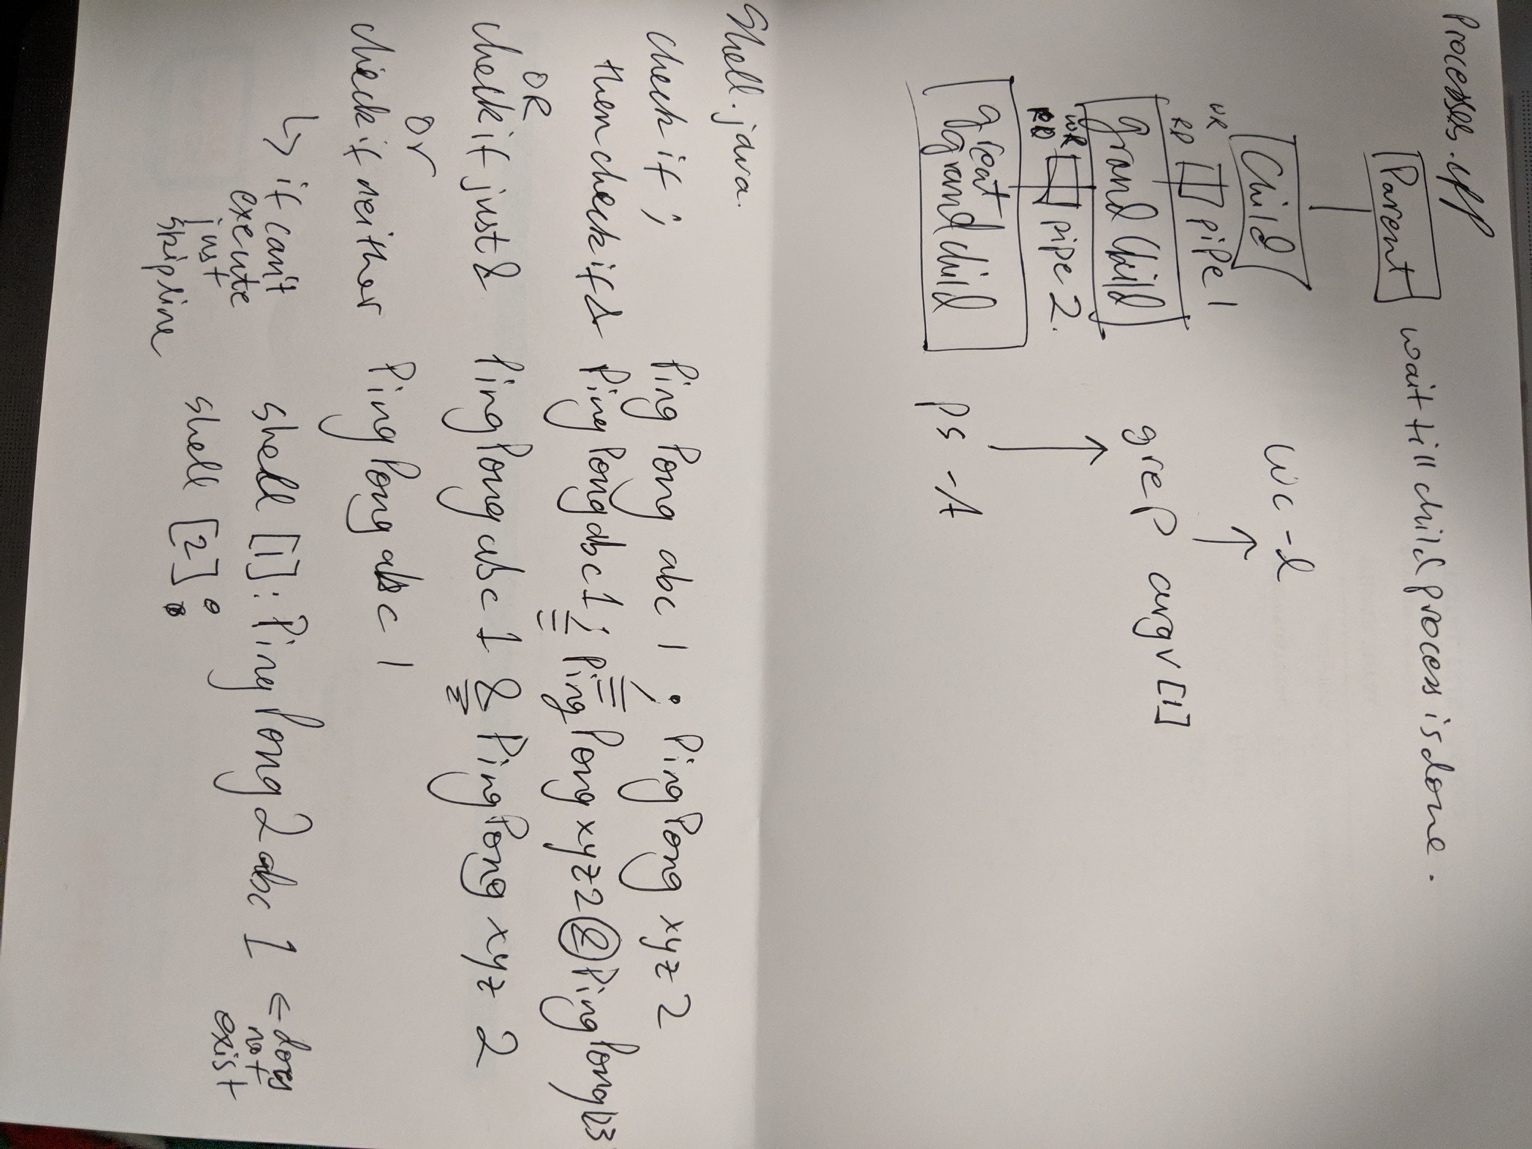 Processes.cpp
Parent wait till child process is done.
Child wc -l
WR
RD pipe 1
grand child grep argv[1]
WR
RD pipe 2.
great grand child ps -A
Shell.java.
check if ; PingPong abc 1 ; PingPong xyz 2
then check if & PingPong abc 1 ; PingPong xyz 2 & PingPong 123
OR
check if just & PingPong abc 1 & PingPong xyz 2
or
check if neither PingPong abc 1
↳ if can't execute just skip line
shell [1]: PingPong 2 abc 1 ⇐ does not exist
shell [2]: